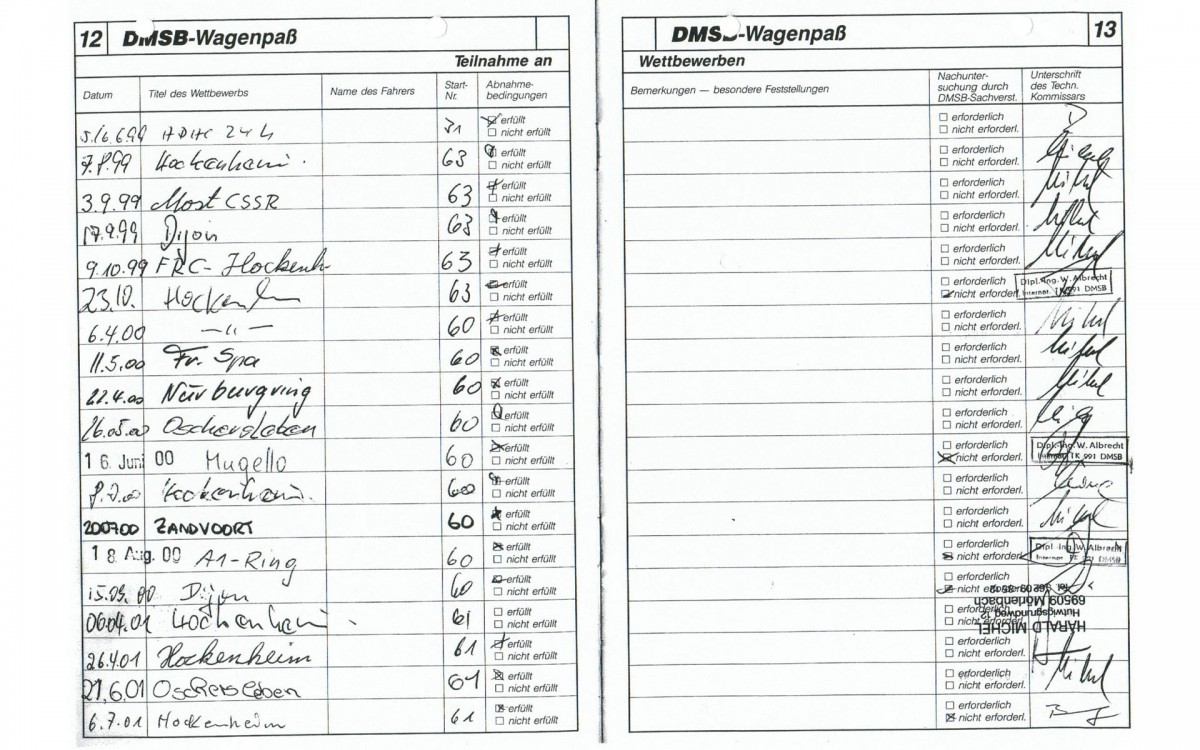 12 DMSB-Wagenpaß
Teilnahme an
Datum Titel des Wettbewerbs Name des Fahrers Start-Nr. Abnahme-bedingungen
5./6.6.99 ADAC 24h 31 erfüllt
nicht erfüllt
7.8.99 Hockenheim 63 erfüllt
nicht erfüllt
3.9.99 Most CSSR 63 erfüllt
nicht erfüllt
17.9.99 Dijon 63 erfüllt
nicht erfüllt
9.10.99 FRC- Hockenh 63 erfüllt
nicht erfüllt
23.10. Hockenh 63 erfüllt
nicht erfüllt
6.4.00 —"— 60 erfüllt
nicht erfüllt
11.5.00 Fr. Spa 60 erfüllt
nicht erfüllt
22.4.00 Nürburgring 60 erfüllt
nicht erfüllt
26.05.00 Oschersleben 60 erfüllt
nicht erfüllt
16. Juni 00 Mugello 60 erfüllt
nicht erfüllt
8.7.00 Hockenheim. 60 erfüllt
nicht erfüllt
200700 ZANDVOORT 60 erfüllt
nicht erfüllt
18. Aug. 00 A1-Ring 60 erfüllt
nicht erfüllt
15.09.00 Dijon 60 erfüllt
nicht erfüllt
06.04.01 Hockenheim 61 erfüllt
nicht erfüllt
26.4.01 Hockenheim 61 erfüllt
nicht erfüllt
21.6.01 Oschersleben 61 erfüllt
nicht erfüllt
6.7.01 Hockenheim 61 erfüllt
nicht erfüllt
DMSB-Wagenpaß 13
Wettbewerben
Bemerkungen — besondere Feststellungen Nachunter-suchung durch DMSB-Sachverst. Unterschrift des Techn. Kommissars
erforderlich
nicht erforderl.
erforderlich
nicht erforderl.
erforderlich
nicht erforderl. Michel
erforderlich
nicht erforderl.
erforderlich
nicht erforderl. Michel
erforderlich Dipl.-Ing. W. Albrecht
nicht erforderl. Internat. TK 991 DMSB
erforderlich
nicht erforderl. Michel
erforderlich
nicht erforderl. Michel
erforderlich
nicht erforderl. Michel
erforderlich
nicht erforderl.
erforderlich Dipl.-Ing. W. Albrecht
nicht erforderl. Internat. TK 991 DMSB
erforderlich
nicht erforderl.
erforderlich
nicht erforderl. Michel
erforderlich Dipl.-Ing. W. Albrecht
nicht erforderl. Internat. TK 991 DMSB
erforderlich
nicht erforderl.
erforderlich
nicht erforderl.
HARALD MICHEL
Hutwigsgrundweg 12
69509 Mörlenbach
erforderlich
nicht erforderl.
erforderlich
nicht erforderl. Michel
erforderlich
nicht erforderl.